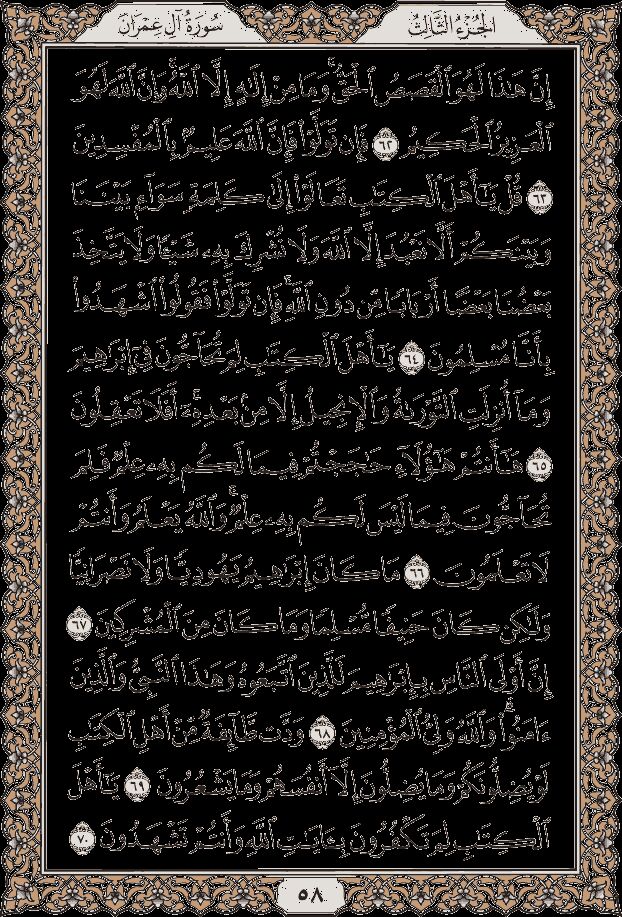 الجزء الثالث
سورة آل عمران
إِنَّ هَٰذَا لَهُوَ ٱلْقَصَصُ ٱلْحَقُّ ۚ وَمَا مِنْ إِلَٰهٍ إِلَّا ٱللَّهُ ۚ وَإِنَّ ٱللَّهَ لَهُوَ
ٱلْعَزِيزُ ٱلْحَكِيمُ ٦٢ فَإِن تَوَلَّوْا۟ فَإِنَّ ٱللَّهَ عَلِيمٌۢ بِٱلْمُفْسِدِينَ
٦٣ قُلْ يَٰٓأَهْلَ ٱلْكِتَٰبِ تَعَالَوْا۟ إِلَىٰ كَلِمَةٍ سَوَآءٍۭ بَيْنَنَا
وَبَيْنَكُمْ أَلَّا نَعْبُدَ إِلَّا ٱللَّهَ وَلَا نُشْرِكَ بِهِۦ شَيْـًٔا وَلَا يَتَّخِذَ
بَعْضُنَا بَعْضًا أَرْبَابًا مِّن دُونِ ٱللَّهِ ۚ فَإِن تَوَلَّوْا۟ فَقُولُوا۟ ٱشْهَدُوا۟
بِأَنَّا مُسْلِمُونَ ٦٤ يَٰٓأَهْلَ ٱلْكِتَٰبِ لِمَ تُحَآجُّونَ فِىٓ إِبْرَٰهِيمَ
وَمَآ أُنزِلَتِ ٱلتَّوْرَىٰةُ وَٱلْإِنجِيلُ إِلَّا مِنۢ بَعْدِهِۦٓ ۚ أَفَلَا تَعْقِلُونَ
٦٥ هَٰٓأَنتُمْ هَٰٓؤُلَآءِ حَٰجَجْتُمْ فِيمَا لَكُم بِهِۦ عِلْمٌ فَلِمَ
تُحَآجُّونَ فِيمَا لَيْسَ لَكُم بِهِۦ عِلْمٌ ۚ وَٱللَّهُ يَعْلَمُ وَأَنتُمْ
لَا تَعْلَمُونَ ٦٦ مَا كَانَ إِبْرَٰهِيمُ يَهُودِيًّا وَلَا نَصْرَانِيًّا
وَلَٰكِن كَانَ حَنِيفًا مُّسْلِمًا وَمَا كَانَ مِنَ ٱلْمُشْرِكِينَ ٦٧
إِنَّ أَوْلَى ٱلنَّاسِ بِإِبْرَٰهِيمَ لَلَّذِينَ ٱتَّبَعُوهُ وَهَٰذَا ٱلنَّبِىُّ وَٱلَّذِينَ
ءَامَنُوا۟ ۗ وَٱللَّهُ وَلِىُّ ٱلْمُؤْمِنِينَ ٦٨ وَدَّت طَّآئِفَةٌ مِّنْ أَهْلِ ٱلْكِتَٰبِ
لَوْ يُضِلُّونَكُمْ وَمَا يُضِلُّونَ إِلَّآ أَنفُسَهُمْ وَمَا يَشْعُرُونَ ٦٩ يَٰٓأَهْلَ
ٱلْكِتَٰبِ لِمَ تَكْفُرُونَ بِـَٔايَٰتِ ٱللَّهِ وَأَنتُمْ تَشْهَدُونَ ٧٠
٥٨